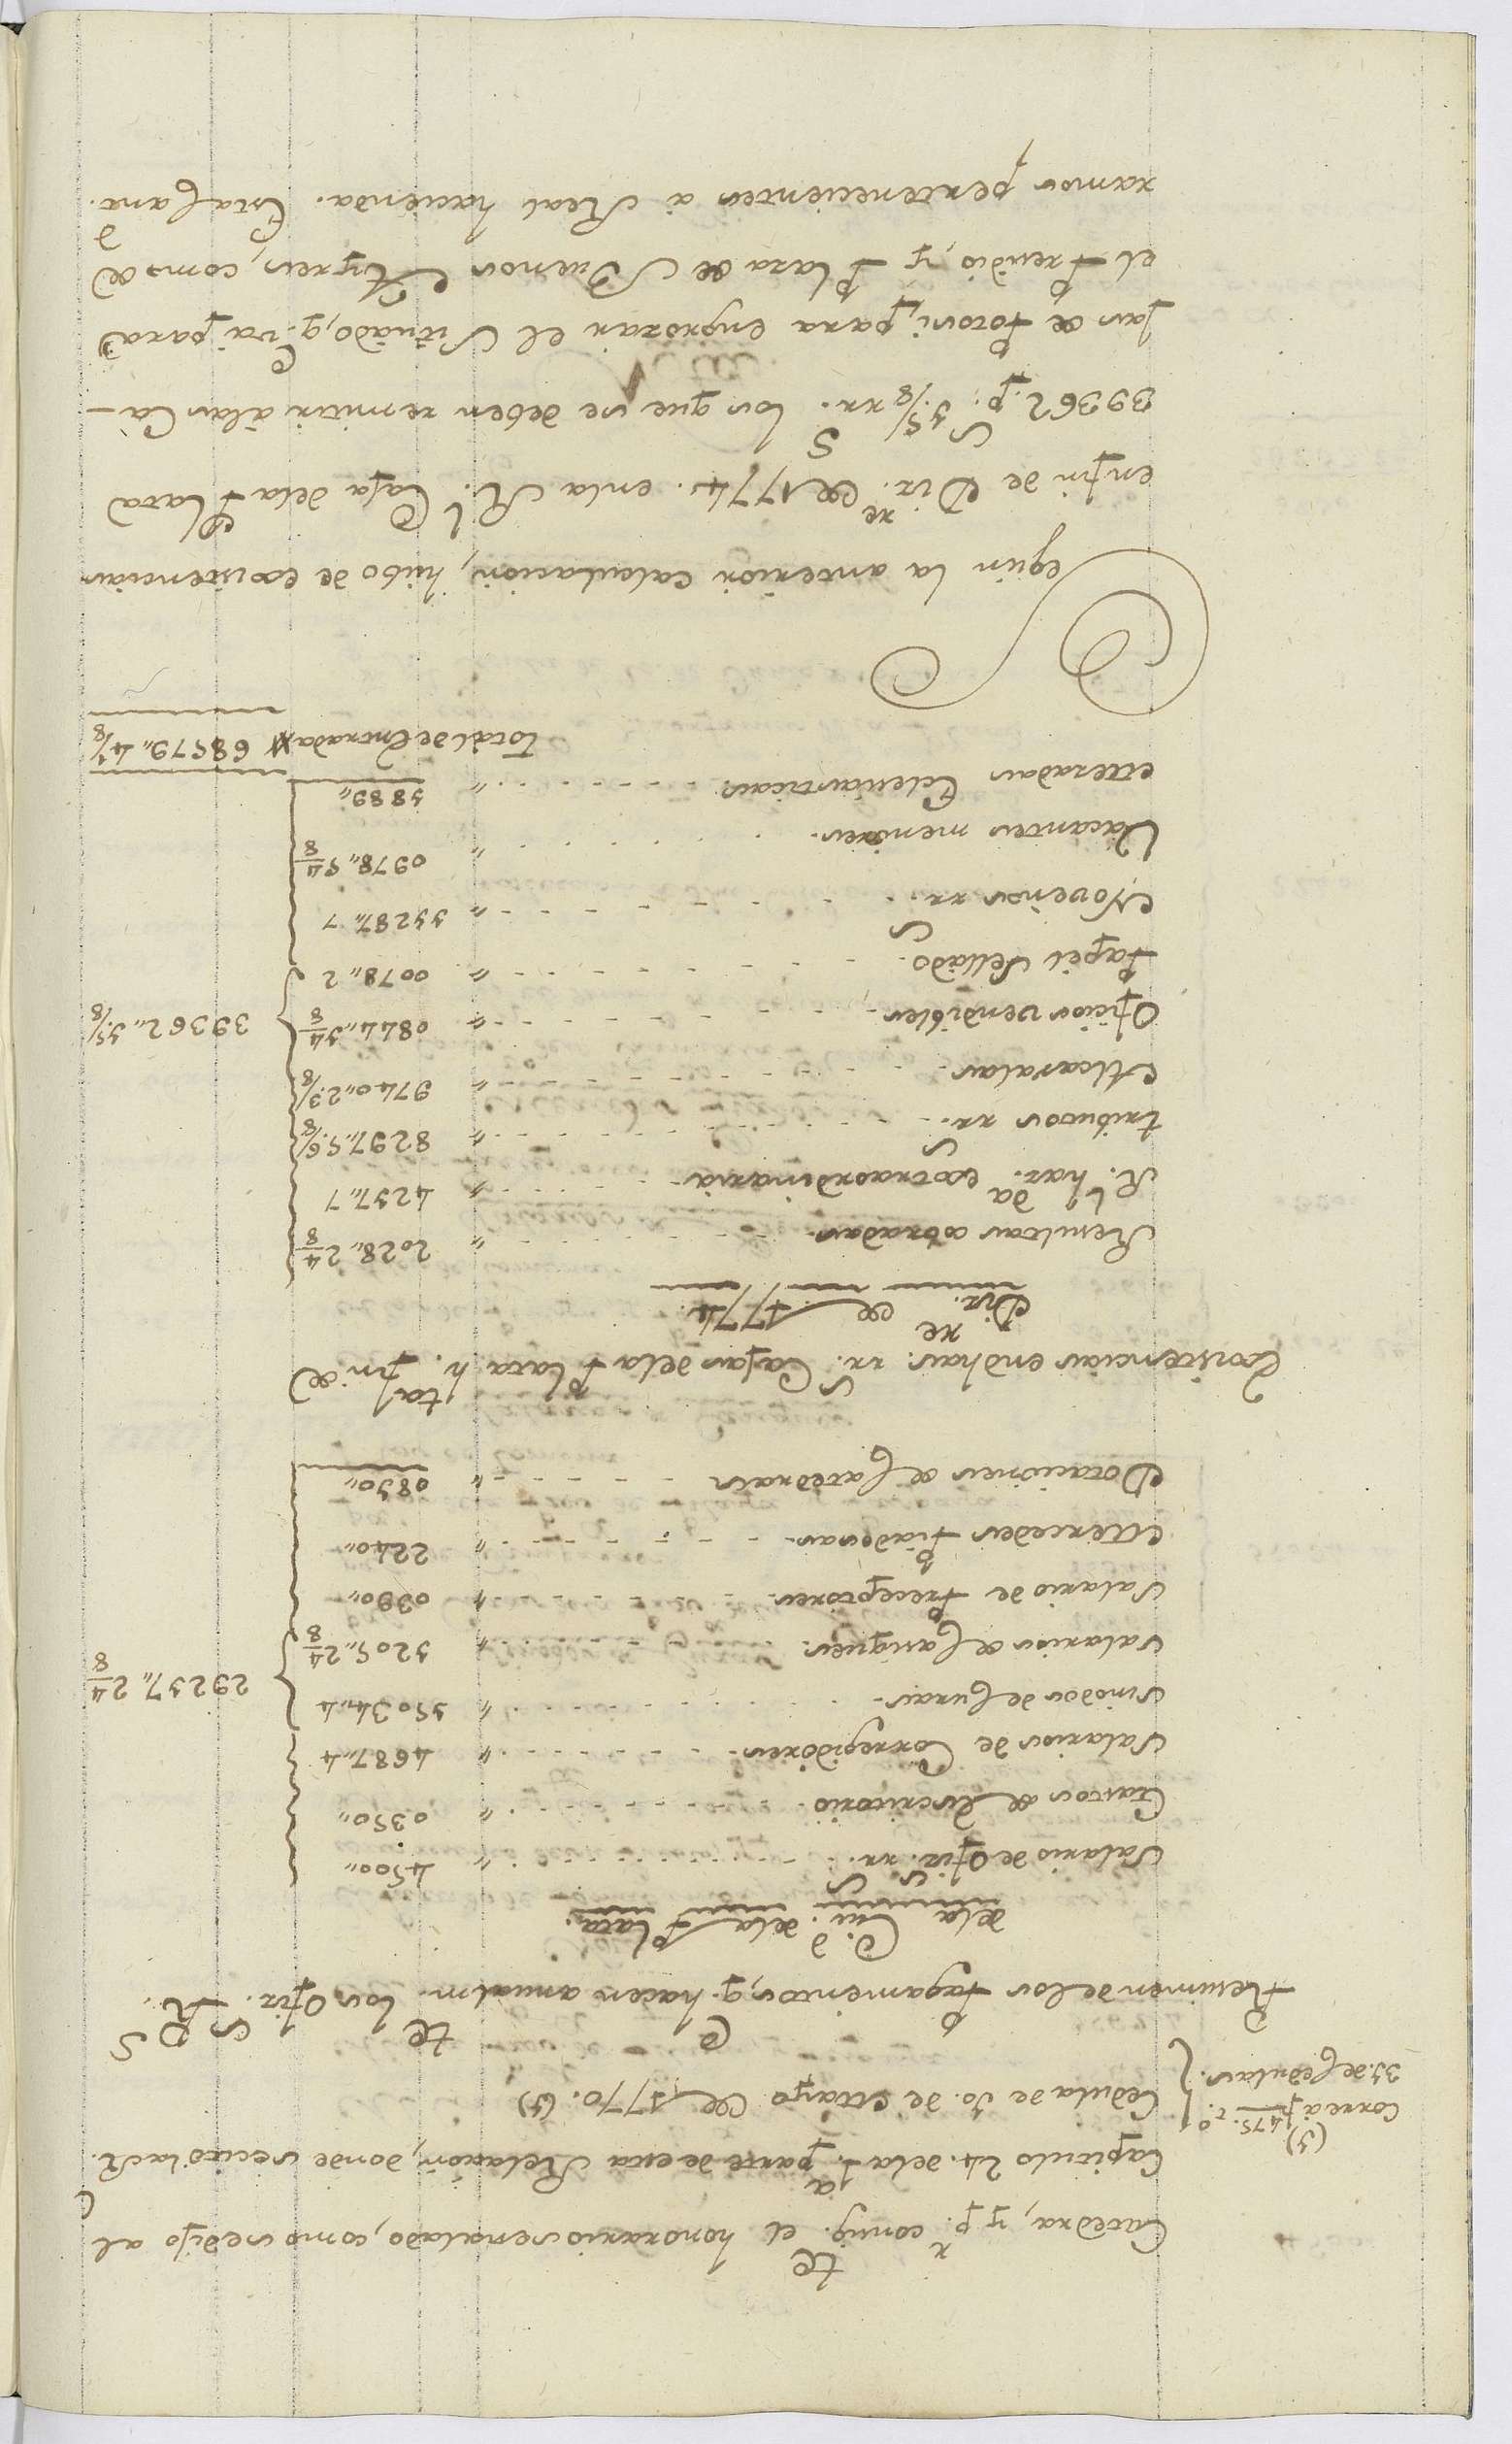 Catedra, y p.r consig.te el honorario señalado, como se dijo al
Capitulo 24. dela 1.a parte de esta Relacion, donde se citó la R.l
Cedula de 30. de Mayo de 1770. (1)
(1)
Corre á f 475. t.o
31. de Cedulas.
Resumen delos Pagamentos, q.e hacen anualm.te los Ofiz.s R.s
dela Ciu.d dela Plata.
Salario de Ofiz.s rr.s " 4500"
Gastos de Escritorio " 0350"
Salarios de Corregidores " 4687"4
Sinodos de Curas " 15034"4
Salarios de Caziques " 1205"2 4/8
Salario de Preceptores " 0390"
Mercedes Piadosas " 2240"
Dotaciones de Catedras " 0830"
29237" 2 4/8
Existencias en dhas. rr.s Cajas dela Plata h.ta fin de
Diz.re de 1774.
Resultas cobradas " 2028"2 4/8
R.l haz.da extraordinaria " 4237"7
tributos rr.s " 8297"5.6/8
Alcavalas " 9740"2 3/8
Oficios vendibles " 0844"1 4/8
Papel Sellado " 0078"2
Novenos rr.s " 11287"7
Vacantes menores " 0978"5 4/8
Mesadas Eclesiasticas " 1889"
39362" 1.5/8
Total de Entrada 68579" 4 1/8
Segun la anterior calculacion, hubo de existencias
en fin de Diz.re de 1774. en la R.l Caja dela Plata
39362 p.s 1.5/8 rr.s los que se deben remitir á las Ca-
jas de Potosi, para engrozar el Situado, q.e va para
el Presidio, y Plaza de Buenos Ayres, como de
ramos pertenecientes á Real hacienda. Esta Cant.d